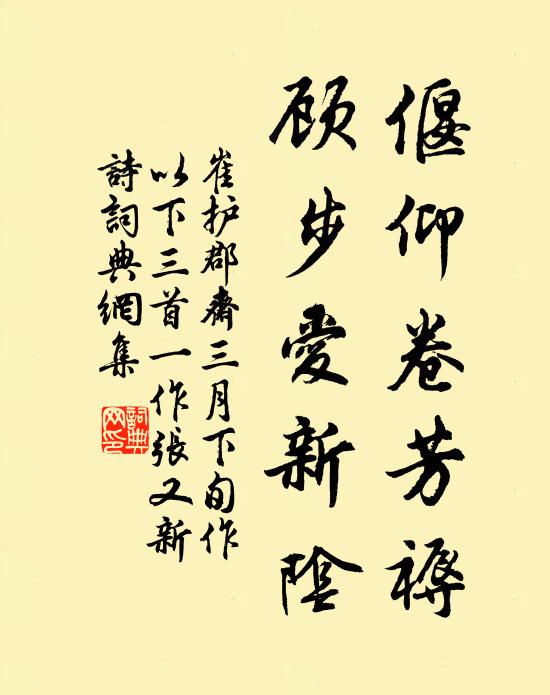 偃仰卷芳褥
顾步爱新陰
崔护郡齋三月下旬作
以下三首一作張又新
詩詞典網集
詞典網印